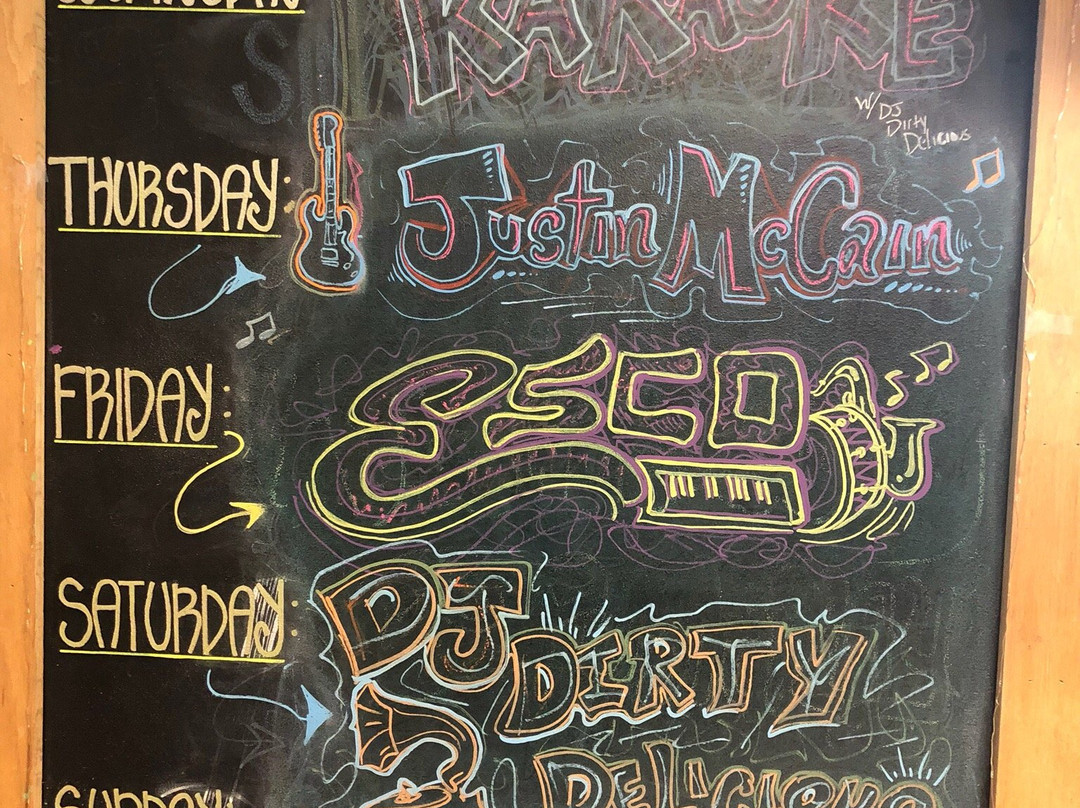 KARAOKE
S
W/ DJ
Dirty
Delicious
THURSDAY:
Justin McCain
FRIDAY:
ESCO
SATURDAY:
DJ
DIRTY
DELICIOUS
SUNDAY: